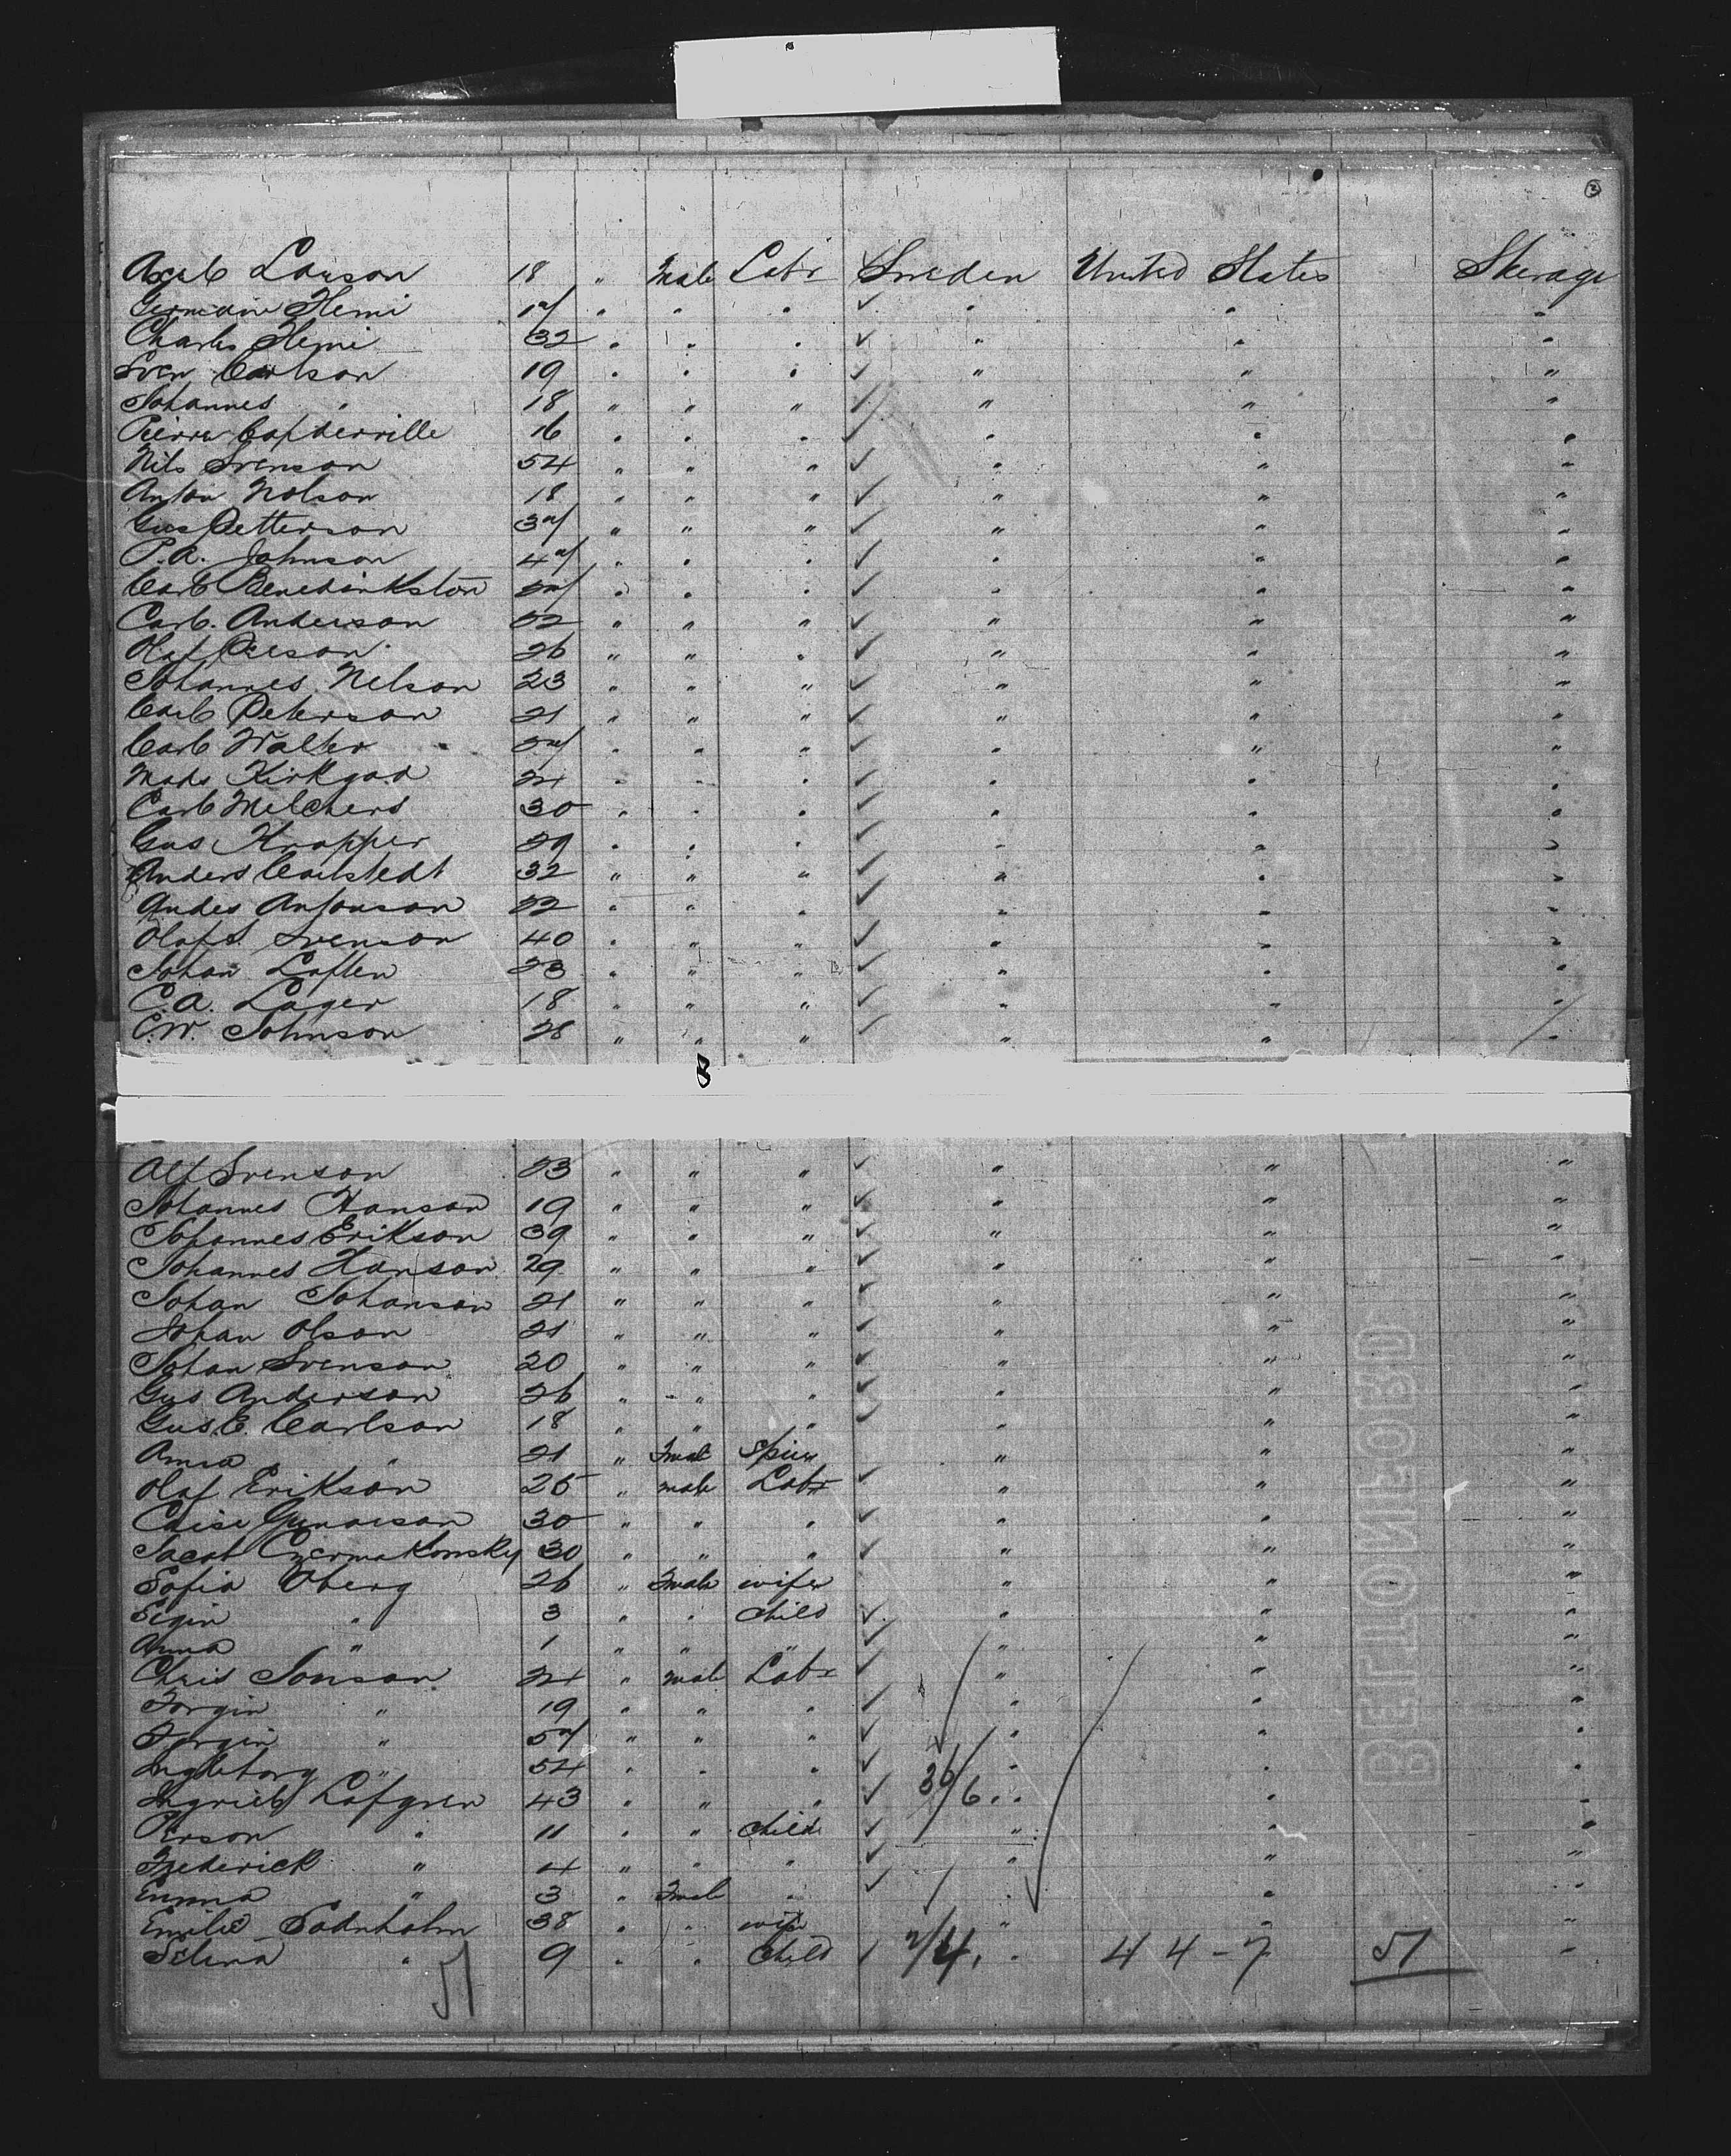 3
Axel Larson 18 " Male Labr ✓ Sweden United States Sterage
Germain Hemi 17 " " " ✓ " " "
Charles Hemi 32 " " " ✓ " " "
Sven Carlson 19 " " " ✓ " " "
Johannes " 18 " " " ✓ " " "
Pierre Capderville 16 " " " ✓ " " "
Nils Svenson 54 " " " ✓ " " "
Anton Nolson 18 " " " ✓ " " "
Gus Petterson 37 " " " ✓ " " "
P.A. Johnson 47 " " " ✓ " " "
Carl Benedinkston 27 " " " ✓ " " "
Carl. Anderson 22 " " " ✓ " " "
Olaf Peerson 26 " " " ✓ " " "
Johannes Nelson 23 " " " ✓ " " "
Carl Peterson 21 " " " ✓ " " "
Carl Walter 27 " " " ✓ " " "
Mads Kirkgad 24 " " " ✓ " " "
Carl Melchers 30 " " " ✓ " " "
Gus Knapper 29 " " " ✓ " " "
Anders Carlstedt 32 " " " ✓ " " "
Andes Antonson 22 " " " ✓ " " "
Olaf S. Svenson 40 " " " ✓ " " "
Johan Loften 23 " " " ✓ " " "
C.A. Lager 18 " " " ✓ " " "
C.W. Johnson 28 " " " ✓ " " "
8
Alf Svenson 23 " " " ✓ " " "
Johannes Hanson 19 " " " ✓ " " "
Johannes Erikson 39 " " " ✓ " " "
Johannes Hanson 29 " " " ✓ " " "
Johan Johanson 21 " " " ✓ " " "
Johan Olson 21 " " " ✓ " " "
Johan Svenson 20 " " " ✓ " " "
Gus Anderson 26 " " " ✓ " " "
Gus E. Carlson 18 " " " ✓ " " "
Anna " 21 " Fmale Spinr " " "
Olaf Erikson 25 " male Labr ✓ " " "
Gunarson 30 " " " ✓ " " "
Jacob Czermakonsky 30 " " " ✓ " " "
Sofia Oberg 26 " Fmale wife " " "
Elgin " 3 " " Child ✓ " " "
Anna " 1 " " " ✓ " " "
Chris Jonson 24 " male Labr ✓ " " "
Jorgin " 19 " " " ✓ " " "
Jorgin " 57 " " " ✓ " " "
Ingleborg " 54 " " " ✓ " " "
Ingrield Lofgren 43 " " " ✓ 36/6 " " "
Person " 11 " " Child ✓ " " "
Frederick " 4 " " " ✓ " " "
Emma " 3 " Fmale " ✓ " " "
Emilie Sodnholm 38 " " wife " " "
Selma " 9 " " Child ✓ 2/4 " 44-7 51 "
51
BETTONFORD